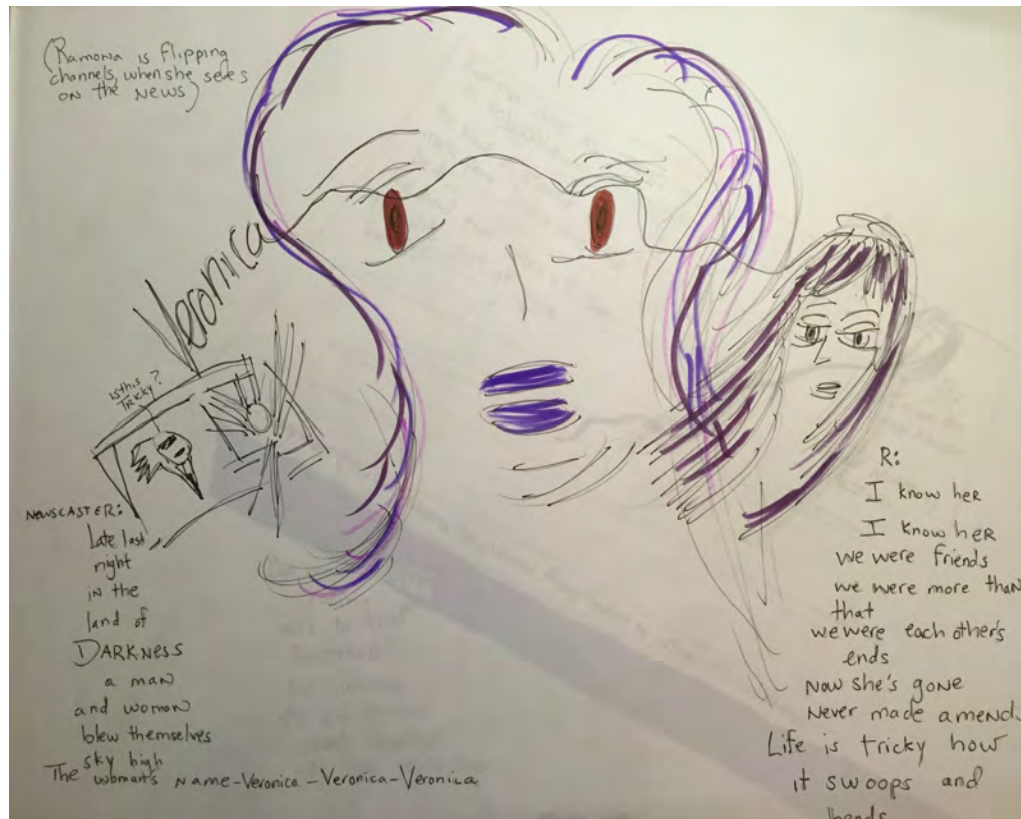 (Ramona is flipping
channels, when she sees
on the news)
Veronica
is this
Tricky?
NEWSCASTER:
Late last
night
in the
land of
DARKNESS
a man
and woman
blew themselves
sky high
The woman's name-Veronica-Veronica-Veronica
R:
I know her
I know her
we were friends
we were more than
that
we were each other's
ends
Now she's gone
Never made amends
Life is tricky how
it swoops and
bends